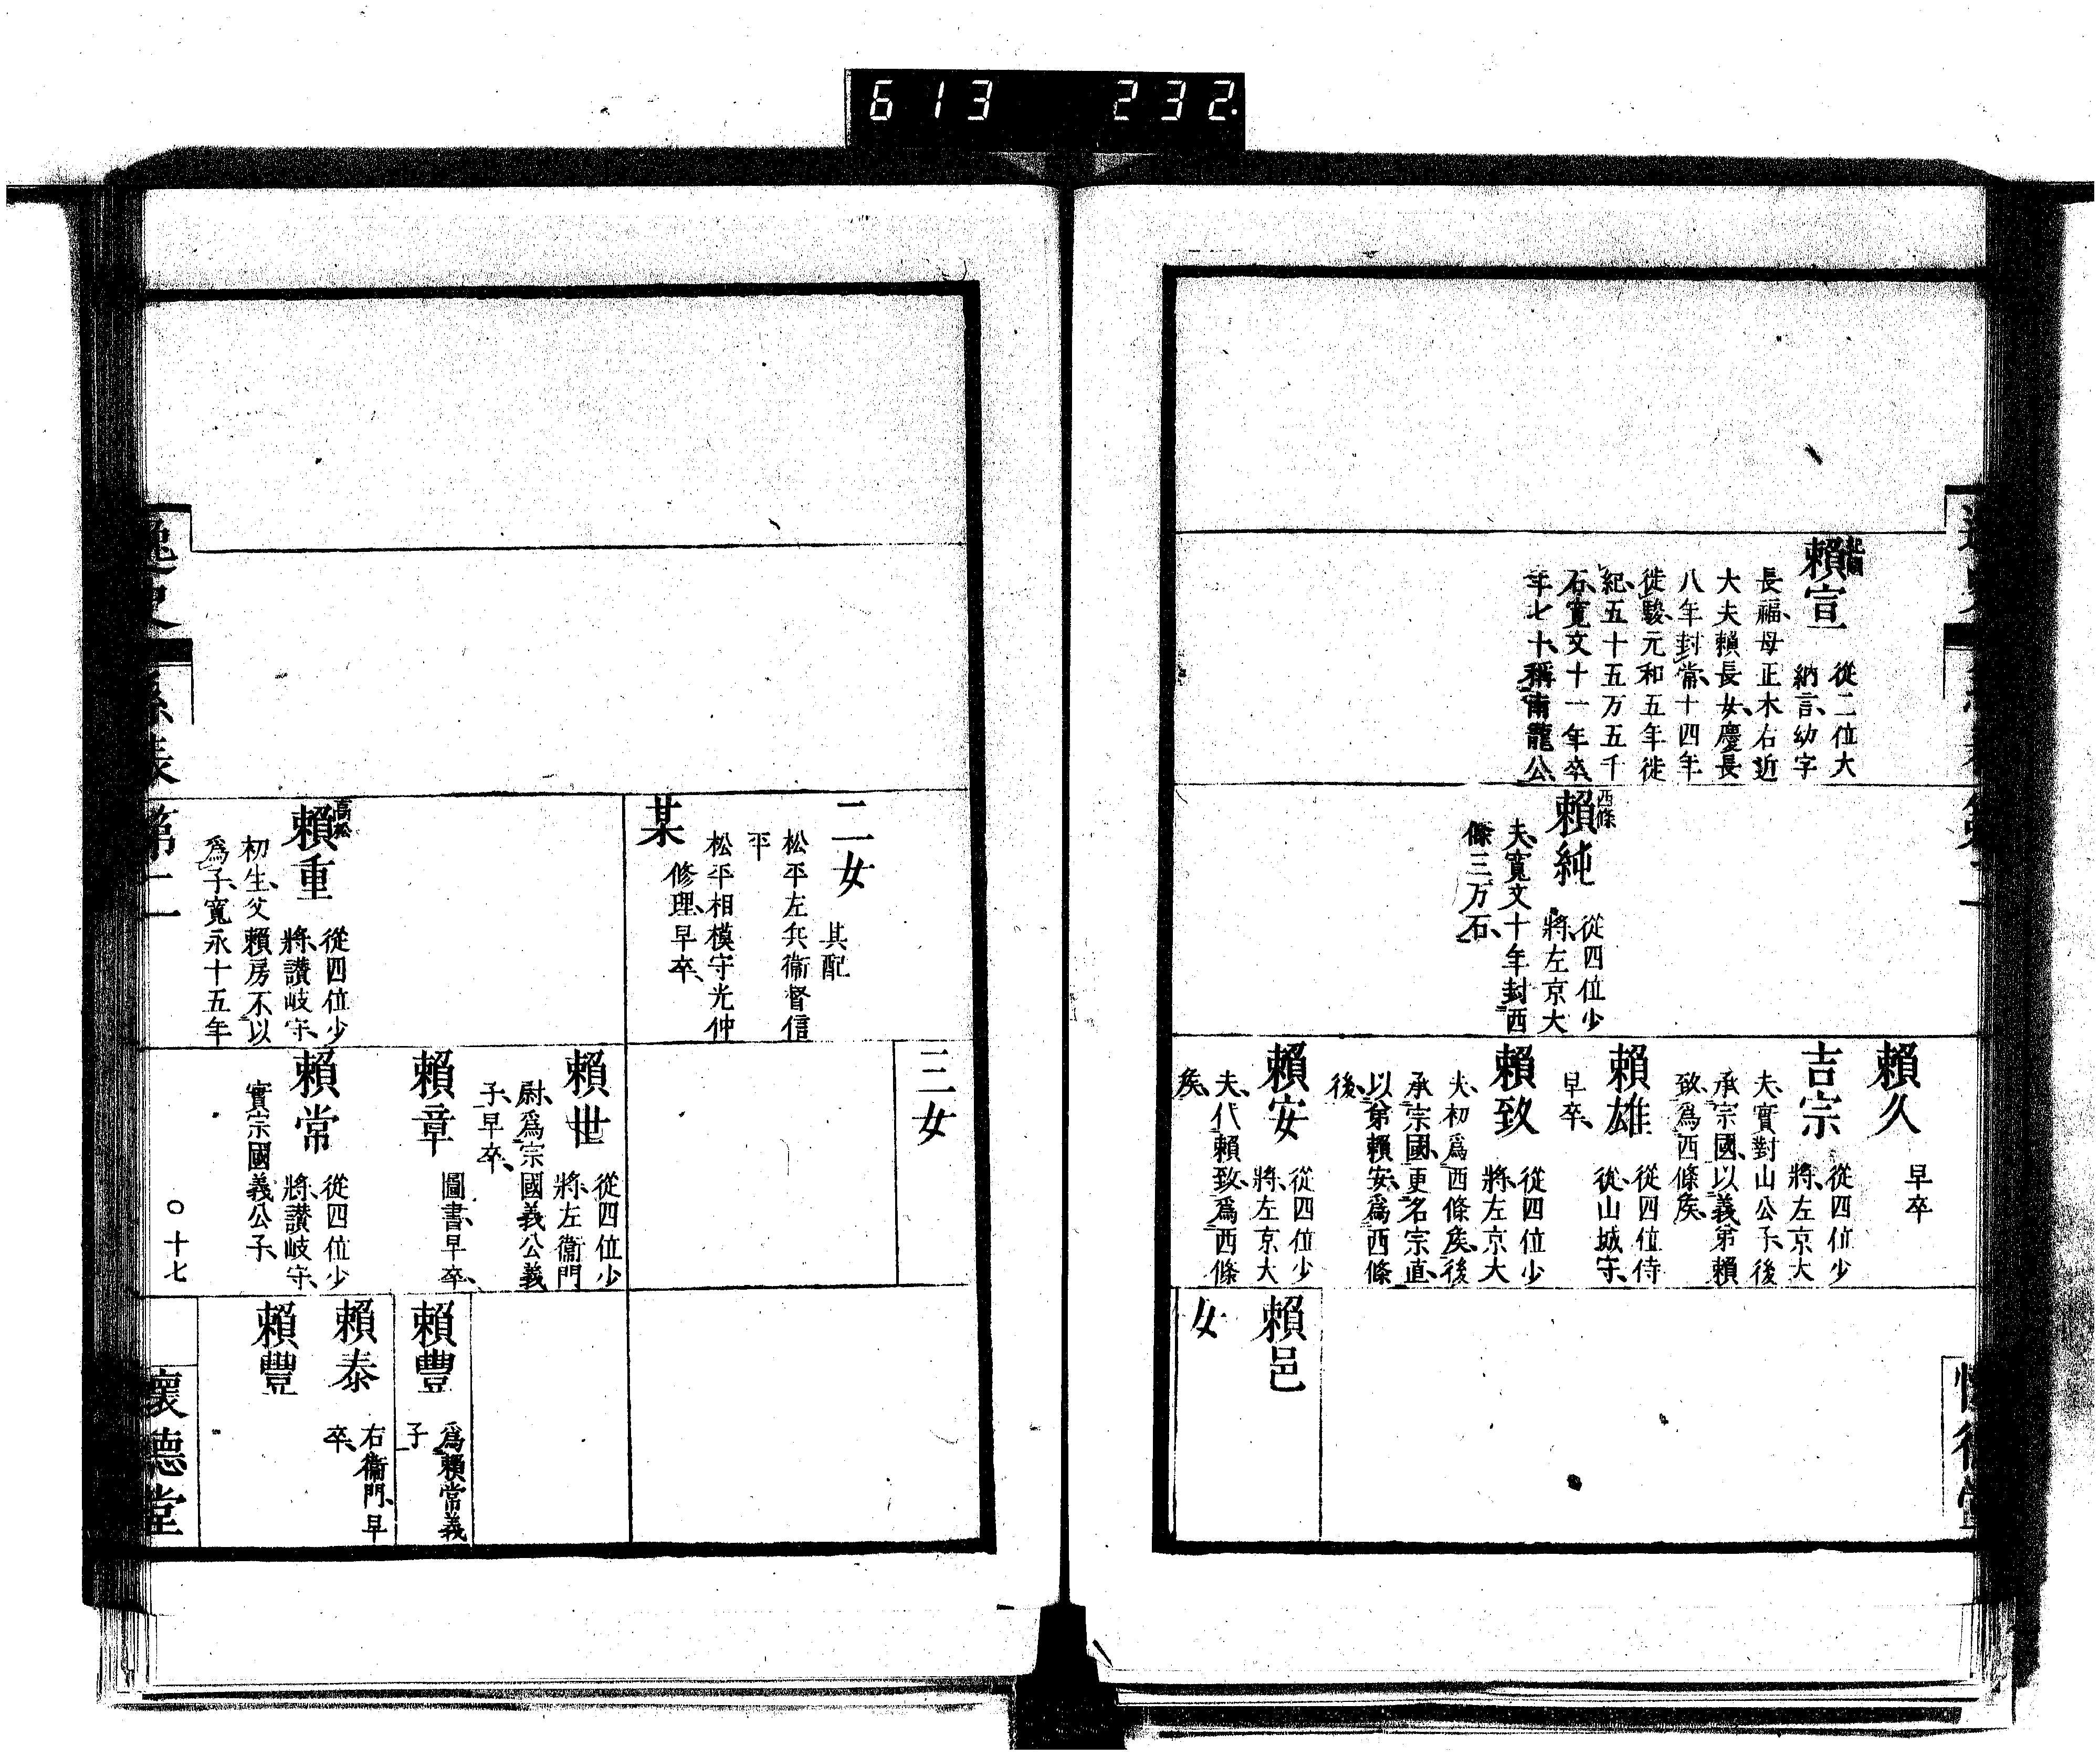 613 232.
紀國
賴宣
從二位大
納言、幼字
長福、母正木右近
大夫賴長女、慶長
八年封常、十四年
徙駿、元和五年徙
紀、五十五万五千
石、寬文十一年卒、
年七十、稱南龍公、
西條
賴純
從四位少
將、左京大
夫、寬文十年封西
條三万石、
賴久
早卒
吉宗
從四位少
將、左京大
夫、實對山公子、後
承宗國、以義弟賴
致爲西條矦、
賴雄
從四位侍
從、山城守、
早卒、
賴致
從四位少
將、左京大
夫、初爲西條矦、後
承宗國、更名宗直、
以弟賴安爲西條
後、
賴安
從四位少
將、左京大
夫、代賴致爲西條
矦、
賴邑
女
二女
其配
松平左兵衞督信
平
松平相模守光仲
某
修理、早卒、
高松
賴重
從四位少
將、讚岐守、
初生、父賴房不以
爲子、寬永十五年
三女
賴世
從四位少
將、左衞門
尉、爲宗國義公義
子、早卒、
賴章
圖書、早卒、
賴常
從四位少
將、讚岐守、
實宗國義公子、
賴豐
爲賴常義
子
賴泰
右衞門、早
卒、
賴豐
逸史
系表第二
〇十七
懷德堂